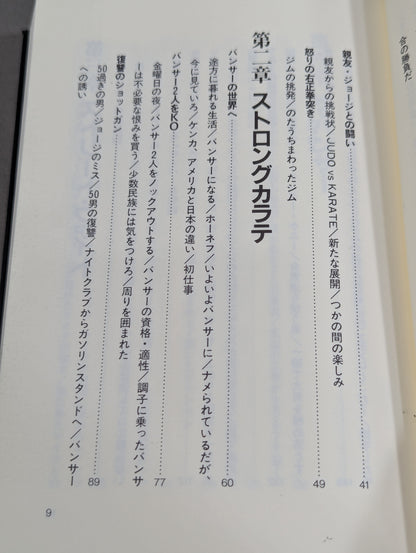 今の勝負だ
親友・ジョージとの闘い
親友からの挑戦状／JUDO vs KARATE／新たな展開／つかの間の楽しみ
41
怒りの右正拳突き
ジムの挑発／のたうちまわったジム
49
第二章 ストロング・カラテ
バンサーの世界へ
途方に暮れる生活／バンサーになる／ホーネフ／いよいよバンサーに／ナメられているだが、
今に見ていろ／ケンカ、アメリカと日本の違い／初仕事
60
バンサー2人をKO
金曜日の夜／バンサー2人をノックアウトする／バンサーの資格・適性／調子に乗ったバンサ
ーは不必要な恨みを買う／少数民族には気をつけろ／周りを囲まれた
77
復讐のショットガン
50過ぎの男／ジョージのミス／50男の復讐／ナイトクラブからガソリンスタンドへ／バンサー
への誘い
89
9